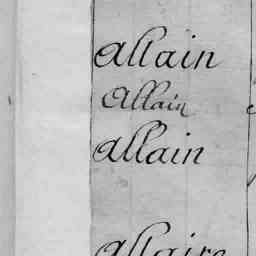 allain
Allain
allain
allaire